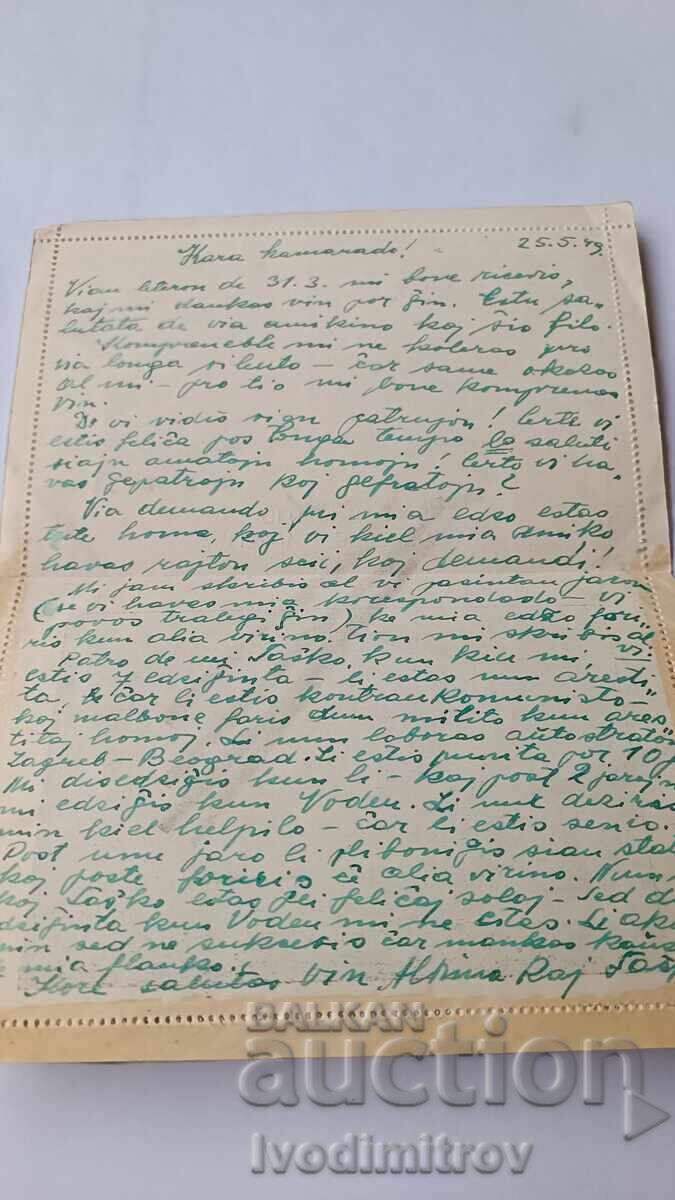 Kara kamarado! 25.5.49
Vian leteron de 31.3. mi bone ricevis,
kaj mi dankas vin por ĝin. Estu sa„
lutata de via amikino kaj ŝio filo.
Kompreneble mi ne koleras pro
via longa silento – ĉar same okazas
al mi – pro tio mi bone komprenas
vin.
Do vi vidis vian patrujon! Certe vi
estis feliĉa pos longa tempo saluti
siajn amatajn homojn! Certo vi ha„
vas gepatrojn kaj gefratojn?
Via demando, pri mia edzo estas
tute homa, kaj vi kiel mia amiko
havas rajton scii, kaj demandi!
Mi jam skribis al vi pasintan jaron
(se vi havas mia korespondado – vi
povos tralegi ĝin) ke mia edzo for„
ris kun alia virino. Tion mi skribis al vi
Patro de mi Taško, kun kiu mi
estis edziĝinta – li estas nun aresti„
ta, ĉar li estis kontraukomunisto–
kaj malbone faris dum milito kun ares
titaj homoj. Li nun laboras autostraton
Zagreb – Beograd. Li estis punita por 10 j
Mi disedziĝis kun li – kaj post 2 jarojn
mi edziĝis kun Voden. Li nur deziras
min kiel helpilo – ĉar li estis senio.
Post unu jaro li plibonigis sian stat
kaj poste foriris ĉe alia virino. Nun
kaj Taško estas pli feliĉaj solaj – Sed d
dziĝinta kun Voden mi ne estas. Li
min sed ne sukcesis ĉar mankas kaŭz
e mia flanko!
Kore salutas vin Kaj Tašk
BALKAN
auction
Ivodimitrov